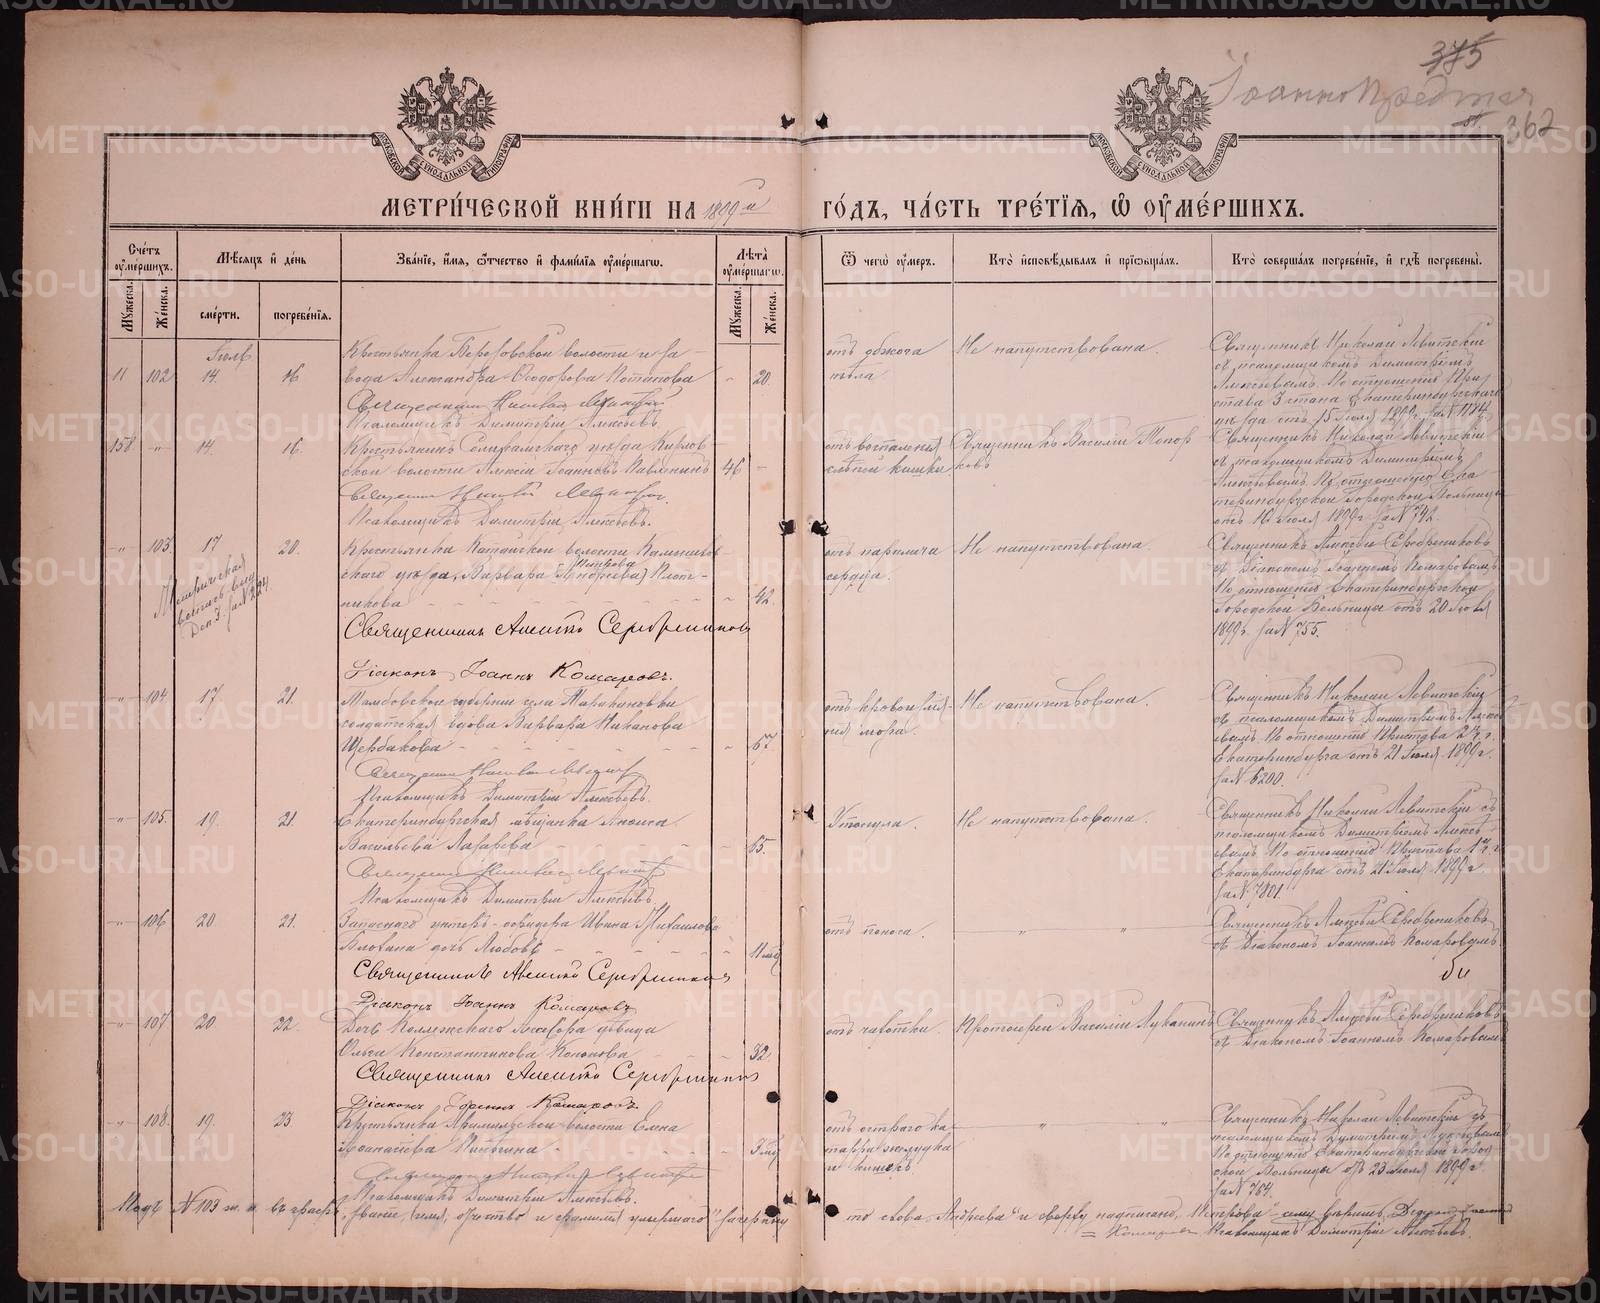 375
Іоанно Предтеч
362
МОСКОВСКОЙ СѴНОДАЛЬНОЙ ТИПОГРАФІИ
МОСКОВСКОЙ СѴНОДАЛЬНОЙ ТИПОГРАФІИ
МЕТРИ́ЧЕСКОЙ КНИ́ГИ НА 1899й ГО́ДЪ, ЧА́СТЬ ТРЕ́ТІѦ, Ѽ ОУМЕ́РШИХЪ.
Сче́тъ оуме́ршихъ.
Мѣ́сяцъ и де́нь
Зва́ніе, и́мя, ѻ́тчество и фами́лія оуме́ршагѡ.
Лѣ́та оуме́ршагѡ.
Ѿ чегѡ̀ оу́меръ.
Кто̀ и҆сповѣ́дывалъ и҆ прїѡбща́лъ.
Кто̀ соверша́лъ погребе́нїе, и҆ гдѣ̀ погребе́ны.
Мꙋ́жеска.
Же́нска.
сме́рти.
погребе́нїя.
Мꙋ́жеска.
Же́нска.
Іюль
11 102 14. 16
Крестьянка Березовской волости и за-
вода Александра Ѳеодорова Потапова - 20.
Священникъ Николай Левитскій
Псаломщикъ Димитрій Алексѣевъ.
отъ обжога
тѣла.
Не напутствована.
Священникъ Николай Левитскій
съ псаломщикомъ Димитріемъ
Алексѣевымъ. По отношенію При-
става 3 стана Екатеринбургскаго
уѣзда отъ 15 Іюля 1899 г. за N 1174.
158. -"- 14. 16.
Крестьянинъ Соликамскаго уѣзда
ской волости Алексѣй Іоанновъ Павленинъ 46 -
Священникъ Николай Левитскій
Псаломщикъ Димитрій Алексѣевъ.
отъ воспаленія
слѣпой кишки.
Священникъ Василій Топор
ковъ
Священникъ Николай Левитскій
съ псаломщикомъ Димитріемъ
Алексѣевымъ. По отношенію Ека
теринбургской Городской Больницы
отъ 16 Іюля 1899 г. за N 742.
-"- 103 17 20.
Крестьянка Катайской волости Камышлов-
скаго уѣзда, Варвара (Андреева) Плот-
Петрова
никова 42.
Священникъ Алексѣй Серебрениковъ
Діаконъ Іоаннъ Комаровъ.
Метрическая
выпись выд.
за N 224.
отъ паралича
сердца.
Не напутствована.
Священникъ Алексѣй Серебрениковъ
съ Діакономъ Іоанномъ Комаровымъ.
По отношенію Екатеринбургской
Городской Больницы отъ 20 Іюля
1899 г. за N 755.
-"- 104 17 21.
Тамбовской губерніи села
солдатская вдова Варвара Никанова
Щербакова 67
Священникъ Николай Левитскій
Псаломщикъ Димитрій Алексѣевъ.
отъ кровоизлія-
нія мозга.
Не напутствована.
Священникъ Николай Левитскій
съ псаломщикомъ Димитріемъ Алексѣ
евымъ По отношенію Пристава 2 ч. г.
Екатеринбурга отъ 21 Іюля 1899 г.
за N 6200.
-"- 105. 19. 21.
Екатеринбургская мѣщанка Анисія
Васильева Лазарева 65.
Священникъ Николай Левитскій
Псаломщикъ Димитрій Алексѣевъ.
Утонула.
Не напутствована.
Священникъ Николай Левитскій съ
псаломщикомъ Димитріемъ Алексѣ-
евымъ По отношенію Пристава 1 ч. г.
Екатеринбурга отъ 21 Іюля 1899 г.
за N 7801.
-"- 106 20. 21.
Запаснаго унтеръ-офицера Ивана Михаилова
дочь Любовь 11 мѣс
Священникъ Алексѣй Серебрениковъ
Діаконъ Іоаннъ Комаровъ
отъ поноса.
Священникъ Алексѣй Серебрениковъ
съ Діакономъ Іоанномъ Комаровымъ.
-"- 107 20 22.
Дочь Коллежскаго Ассесора дѣвица
Ольга Константинова Кононова 32
Священникъ Алексѣй Серебрениковъ
Діаконъ Іоаннъ Комаровъ
отъ чахотки.
Протоіерей Василій Луканинъ
Священникъ Алексѣй Серебрениковъ
съ Діакономъ Іоанномъ Комаровымъ
-"- 108. 19. 23
Крестьянка Арамильской волости Елена
3 мѣс
Священникъ Николай Левитскій
Псаломщикъ Димитрій Алексѣевъ.
отъ остраго ка-
тарра желудка
и кишекъ
Священникъ Николай Левитскій съ
псаломщикомъ Димитріемъ Алексѣевымъ
По отношенію Екатеринбургской Город
ской Больницы отъ 23 Іюля 1899 г.
за N 764.
Подъ N 103 ж. п. въ графѣ „званіе, имя, отчество и фамилія умершаго" зачеркну
то слово „Андреева" и сверху надписано „Петрова" сему вѣримъ.
Комаровъ Псаломщикъ Димитрій Алексѣевъ.
METRIKI.GASO-URAL.RU